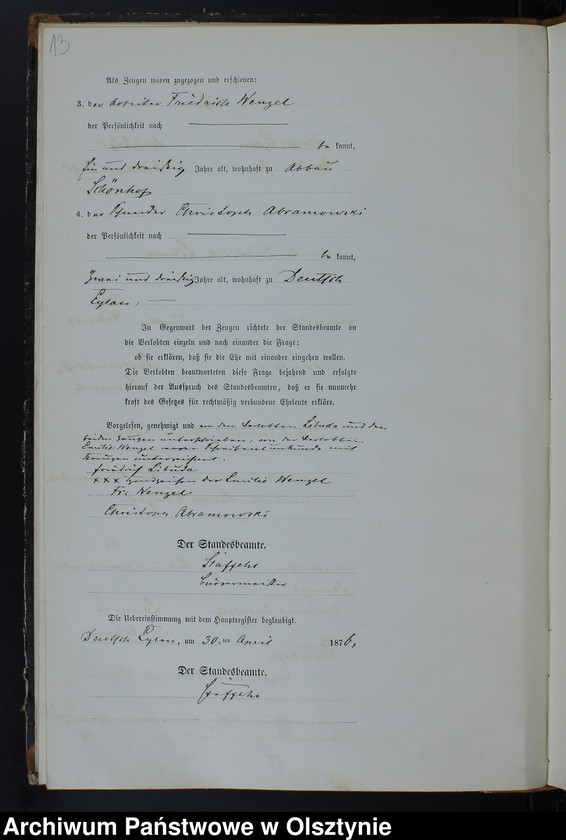 13
Als Zeugen waren zugezogen und erschienen:
3. der Arbeiter Friedrich Wenzel
der Persönlichkeit nach
be kannt,
ein und dreißig Jahre alt, wohnhaft zu Abbau
Schönhof
4. der Schneider Christoph Abramowski
der Persönlichkeit nach
be kannt,
zwei und dreißig Jahre alt, wohnhaft zu Deutsch
Eylau,
In Gegenwart der Zeugen richtete der Standesbeamte an
die Verlobten einzeln und nach einander die Frage:
ob sie erklären, daß sie die Ehe mit einander eingehen wollen.
Die Verlobten beantworteten diese Frage bejahend und erfolgte
hierauf der Ausspruch des Standesbeamten, daß er sie nunmehr
kraft des Gesetzes für rechtmäßig verbundene Eheleute erkläre.
Vorgelesen, genehmigt und von dem Verlobten Libuda und den
beiden Zeugen unterschrieben, von der Verlobten
Emilie Wenzel wegen Schreibensunkunde mit
Kreuzen unterzeichnet.
Friedrich Libuda
××× Handzeichen der Emilie Wenzel
Fr: Wenzel
Christoph Abramowski
Der Standesbeamte.
Bürgermeister
Die Uebereinstimmung mit dem Hauptregister beglaubigt.
Deutsch Eylau, am 30. ten April 1876,
Der Standesbeamte.